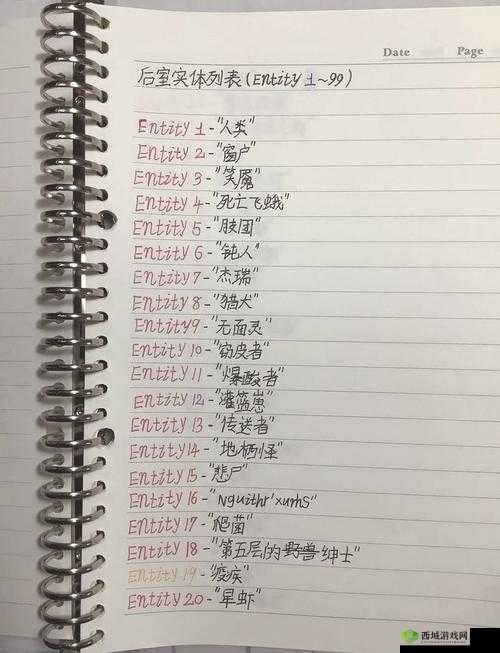 Date Page
后室实体列表(Entity 1~99)
Entity 1-"人类"
Entity 2-"窗户"
Entity 3-"笑魇"
Entity 4-"死亡飞蛾"
Entity 5-"肢团"
Entity 6-"钝人"
Entity 7-"杰瑞"
Entity 8-"猎犬"
Entity 9-"无面灵"
Entity 10-"窃皮者"
Entity 11-"爆酸者"
Entity 12-"灌篮崽"
Entity 13-"传送者"
Entity 14-"地栖怪"
Entity 15-"悲尸"
Entity 16-"Nguithr'xurhS"
Entity 17-"爬菌"
Entity 18-"第五层的野兽绅士"
Entity 19-"瘦疾"
Entity 20-"旱虾"
西域游戏网